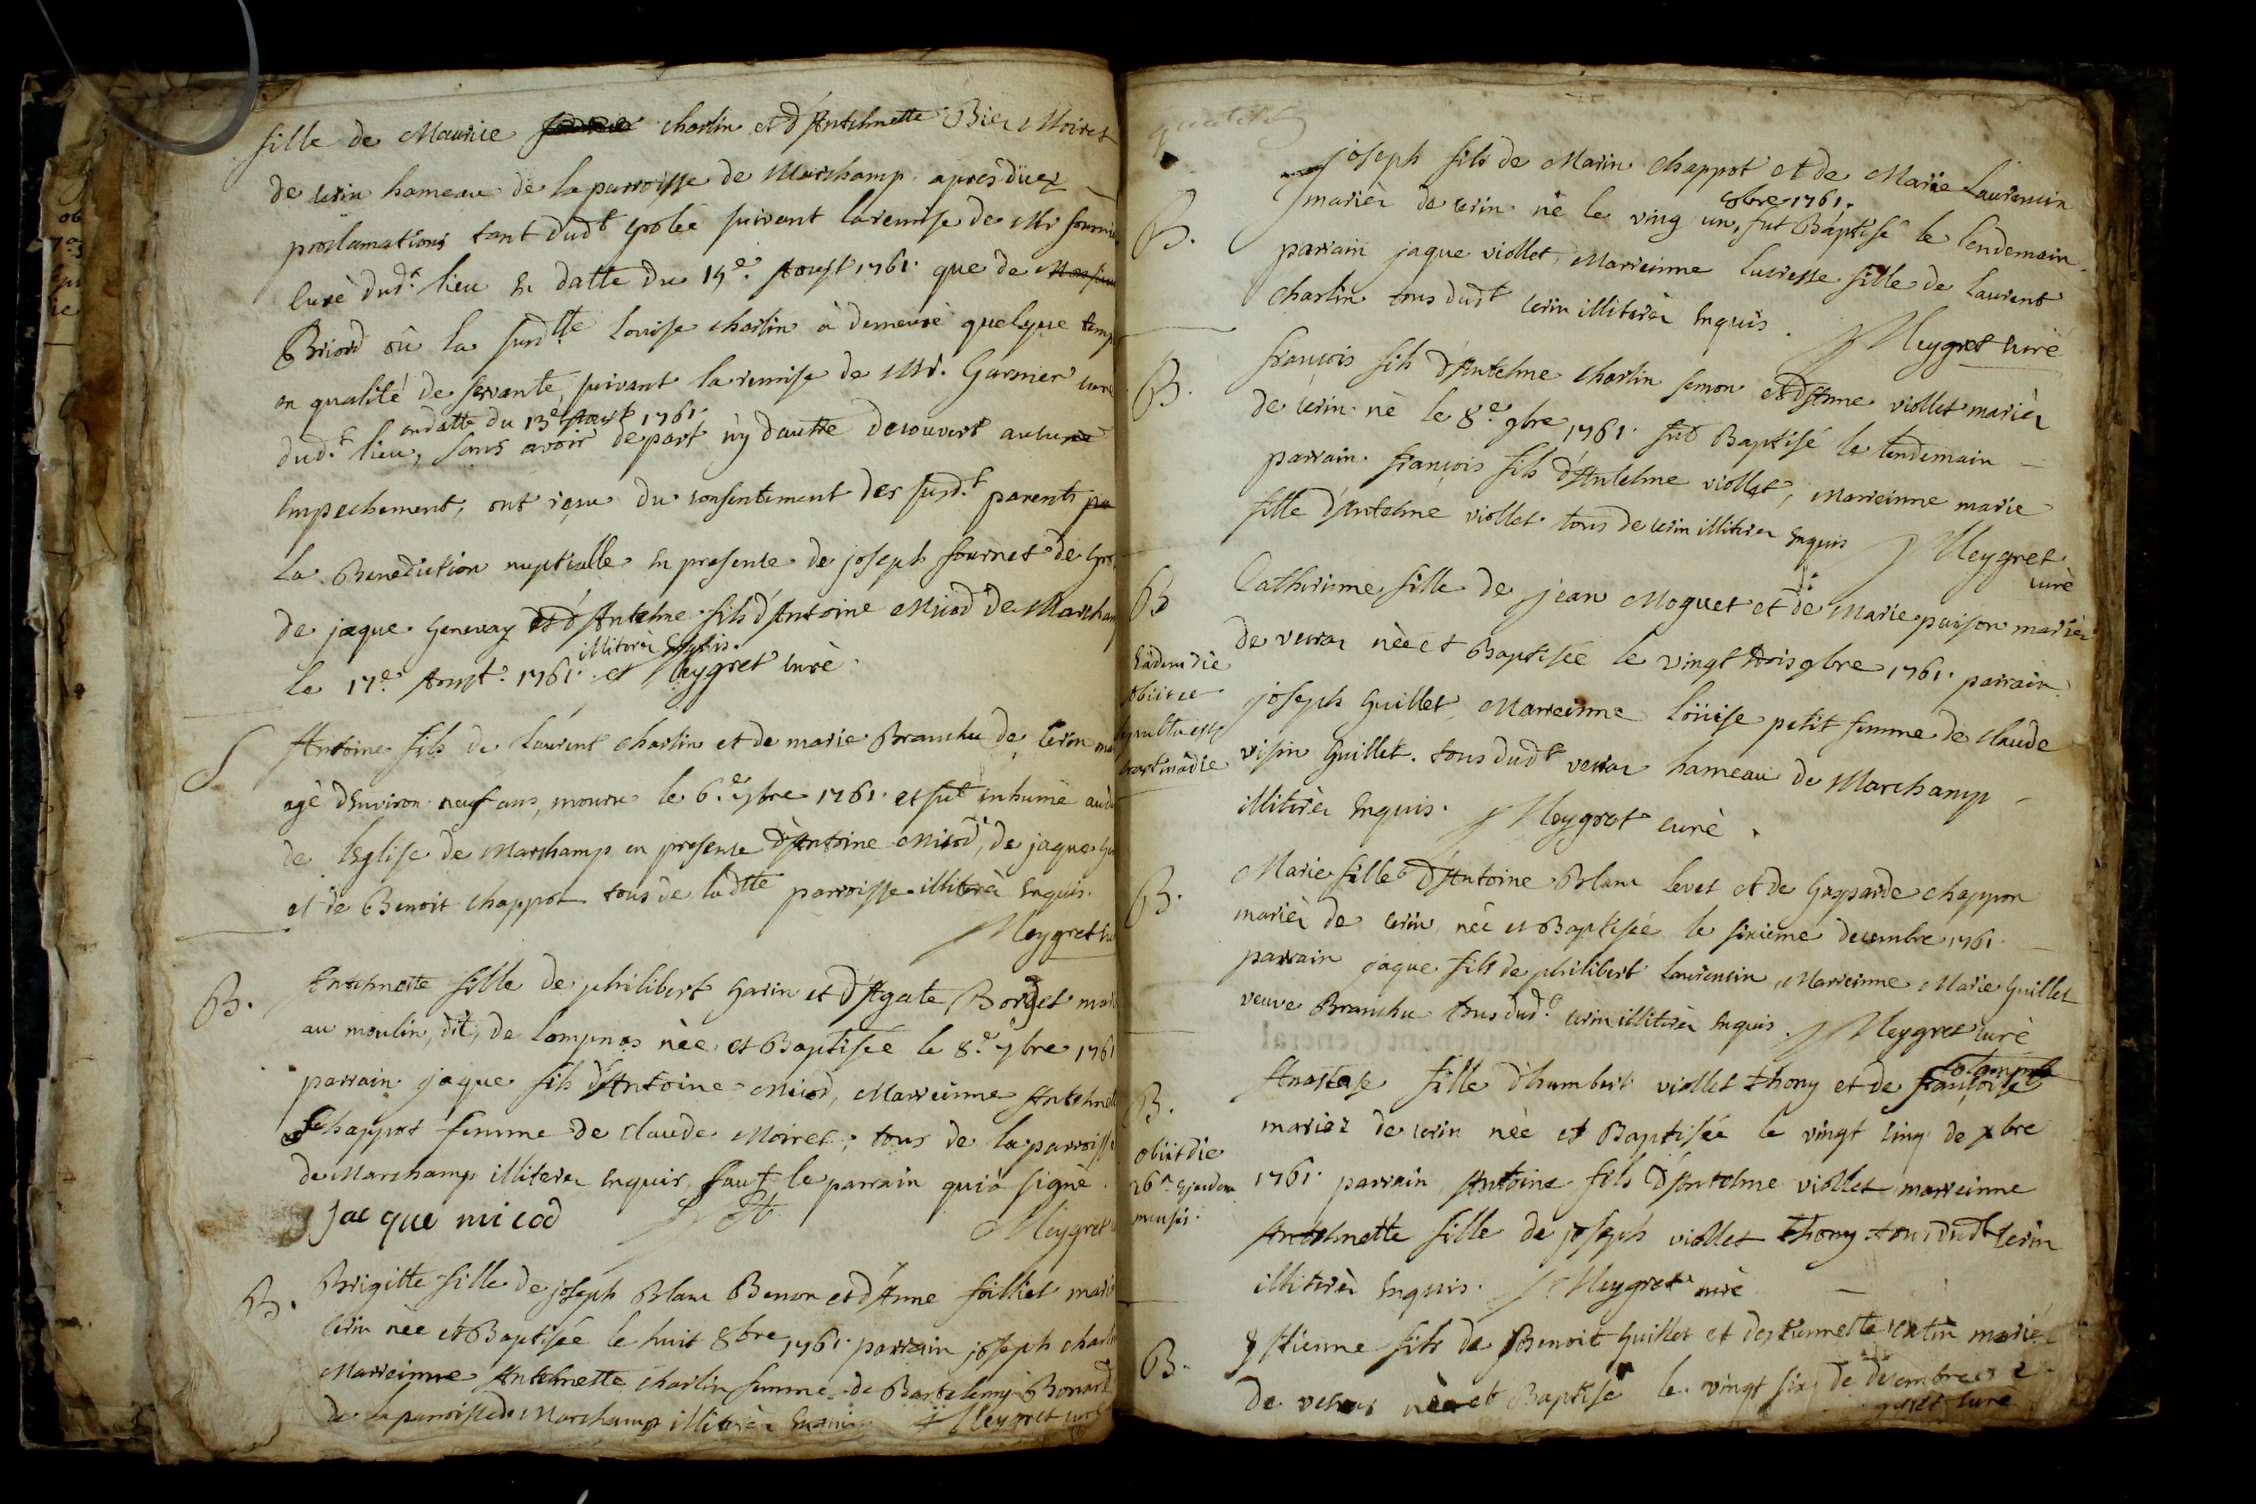 fille de Maurice charlin et d'Antelmette Bier Moiret
de cerin hameau de la parroisse de Marchamp apres düez
proclamations tant dudt grolée suivant la remise de Mr fournie
curè dudt lieu en datte du 15e. Aoust 1761. que de
Briord où la surdtte louise charlin à demeurè quelque temp
en qualité de servante, suivant la remise de Mr. Garnier curé
en datte du 13e Aoust 1761.
dudt lieu, sans avoir de part n'y dautre decouvert aucune
Empechement, ont reçu du consentement des susdt parents
la Benediction nuptialle en presence de joseph fournet de
de jaque Genevay et d'Antelme fils d'Antoine Micod de Marchamp
illiterèz Enquis.
le 17e. Aoust. 1761. et Meygret curè.
S
Antoine fils de laurent charlin et de marie Branche de cerin
agè d'Environ neuf ans, mourut le 6.e 7bre 1761. et fut inhumè
de l'Eglise de Marchamp en presence d'Antoine Micod, de jaque
et de Benoit chappot tous de ladtte parroisse illiterèz Enquis.
Meygret
B.
Antelmette fille de philibert Garin et d'Agate Borget
au moulin, dit, de lompnas nèe et Baptisèe le 8.e 7bre 1761
parrain jaque fils d'Antoine Micod, Marreinne
Chappot femme de claude Moiret; tous de la parroisse
de Marchamp illiterez Enquis, sauf le parrain qui à signè.
jacque micod
Meygret
B.
Brigitte fille de joseph Blanc Benon et d'Anne foilliet
cerin nèe et Baptisée le huit 8bre 1761. parrain joseph
Marreinne Antelmette charlin femme de Bartelemy Bonard
de la parroisse de Marchamp illiterèz Enquis Meygret curè
B.
joseph fils de Marin chappot et de Marie laurencin
8bre 1761.
mariez de cerin nè le ving un, fut Baptisé le lendemain
parrain jaque viollet, Marreinne lucresse fille de laurent
charlin tous dudt cerin illiterèz Enquis. Meygret curè
B.
françois fils d'Antelme charlin semon et d'Anne viollet marièz
de cerin nè le 8.e 9bre 1761. fut Baptisé le lendemain
parrain françois fils d'Antelme viollet, Marreinne marie
fille d'Antelme viollet tous de cerin illiterez Enquis Meygret
curè
B
Catherinne fille de jean Moguet et de Marie puison mariez
de verou nèe et Baptisèe le vingt trois 9bre 1761. parrain
joseph Guillet, Marreinne loüise petit femme de claude
visin Guillet. tous dudt verou hameau de Marchamp
illiterèz Enquis. Meygret curè.
Eâdem die
obiit et
sepulta est
crastinâ die
B.
Marie fille d'Antoine Blanc levet et de Gasparde chappon
marièz de cerin nèe et Baptisèe le sixieme decembre 1761.
parrain jaque fils de philibert laurencin, Marreinne Marie Guillet
veuve Branche tous dudt cerin illiterèz Enquis. Meygret curè
B.
obiit die
26a Ejusdem
mensis.
Anastase fille d'humbert viollet thony et de françoise
mariez de cerin nèe et Baptisèe le vingt cinq de xbre
1761. parrain Antoine fils d'Antelme viollet marreinne
Antelmette fille de joseph viollet thony tous dudt cerin
illiterèz Enquis. Meygret curè
B.
Etienne fils de Benoit Guillet et d'estiennette mariez
de verou nèe et Baptisè le vingt six de decembre
curè